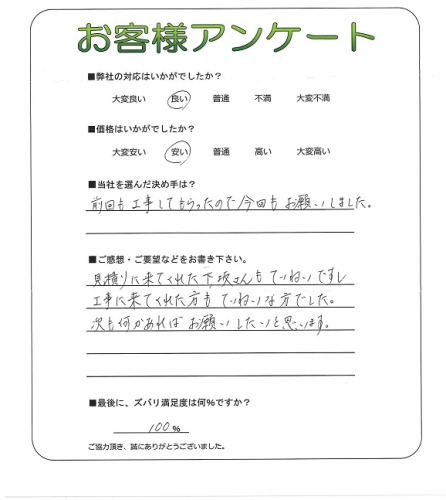 お客様アンケート
■弊社の対応はいかがでしたか？
大変良い 良い 普通 不満 大変不満
■価格はいかがでしたか？
大変安い 安い 普通 高い 大変高い
■当社を選んだ決め手は？
前回も工事してもらったので今回もお願いしました。
■ご感想・ご要望などをお書き下さい。
見積りに来てくれた下坂さんもていねいですし
工事に来てくれた方もていねいな方でした。
次も何かあればお願いしたいと思います。
■最後に、ズバリ満足度は何％ですか？
100％
ご協力頂き、誠にありがとうございました。